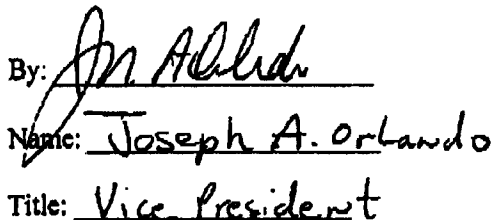 By:
Name: Joseph A. Orlando
Title: Vice President